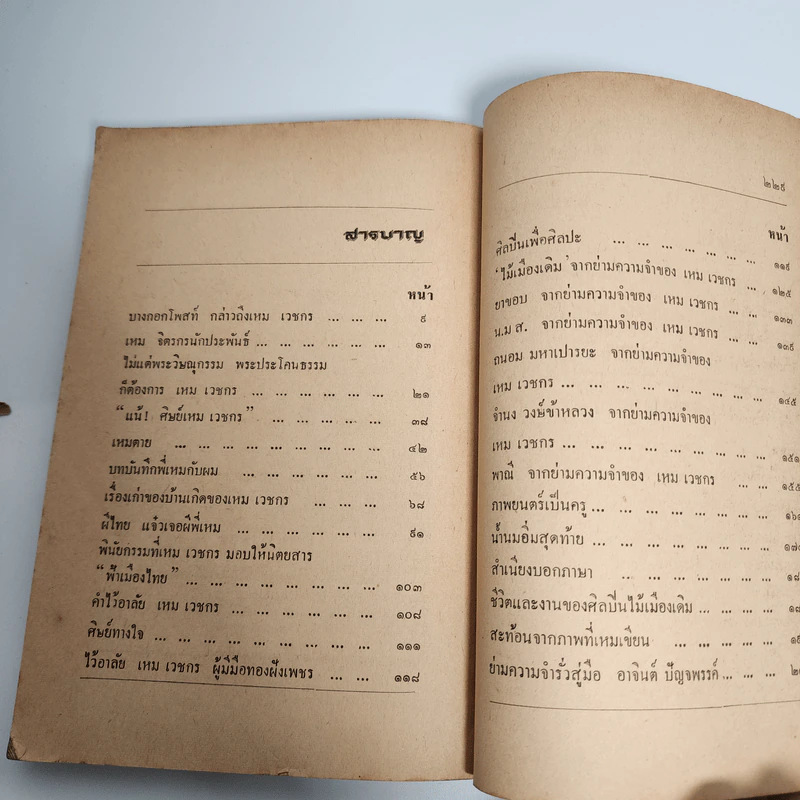 สารบาญ
หน้า
บางกอกโพสท์ กล่าวถึงเหม เวชกร ... ... ... ๙
เหม จิตรกรนักประพันธ์ ... ... ... ... ... ... ... ๑๓
ไม่แต่พระวิษณุกรรม พระประโคนธรรม
ก็ต้องการ เหม เวชกร ... ... ... ... ... ... ๒๑
“แน้! ศิษย์เหม เวชกร” ... ... ... ... ... ... ๓๘
เหมตาย ... ... ... ... ... ... ... ... ... ๔๒
บทบันทึกพี่เหมกับผม ... ... ... ... ... ... ๕๖
เรื่องเก่าของบ้านเกิดของเหม เวชกร ... ... ... ๖๘
ผีไทย แจ๋วเจอผีพี่เหม ... ... ... ... ... ... ๙๑
พินัยกรรมที่เหม เวชกร มอบให้นิตยสาร
“ฟ้าเมืองไทย” ... ... ... ... ... ... ... ... ... ๑๐๓
คำไว้อาลัย เหม เวชกร ... ... ... ... ... ... ๑๐๘
ศิษย์ทางใจ ... ... ... ... ... ... ... ... ... ๑๑๑
ไว้อาลัย เหม เวชกร ผู้มีมือทองฝังเพชร ... ... ๑๑๘
๒๒๙
หน้า
ศิลปินเพื่อศิลปะ ... ... ... ... ... ... ... ๑๑๙
‘ไม้เมืองเดิม’ จากย่ามความจำของ เหม เวชกร ... ... ๑๒๕
ยาขอบ จากย่ามความจำของ เหม เวชกร ... ... ๑๓๓
น.ม.ส. จากย่ามความจำของ เหม เวชกร ... ... ๑๓๙
ถนอม มหาเปารยะ จากย่ามความจำของ
เหม เวชกร ... ... ... ... ... ... ... ... ๑๔๕
จำนง วงษ์ข้าหลวง จากย่ามความจำของ
เหม เวชกร ... ... ... ... ... ... ... ... ๑๕๑
พาณี จากย่ามความจำของ เหม เวชกร ... ... ๑๕๕
ภาพยนตร์เป็นครู ... ... ... ... ... ... ... ๑๖
น้ำนมอิ่มสุดท้าย ... ... ... ... ... ... ... ๑๗
สำเนียงบอกภาษา ... ... ... ... ... ... ๑๘
ชีวิตและงานของศิลปินไม้เมืองเดิม ... ... ... ... ๑๘
สะท้อนจากภาพที่เหมเขียน ... ... ... ... ๑๙
ย่ามความจำรั่วสู่มือ อาจินต์ ปัญจพรรค์ ... ... ...